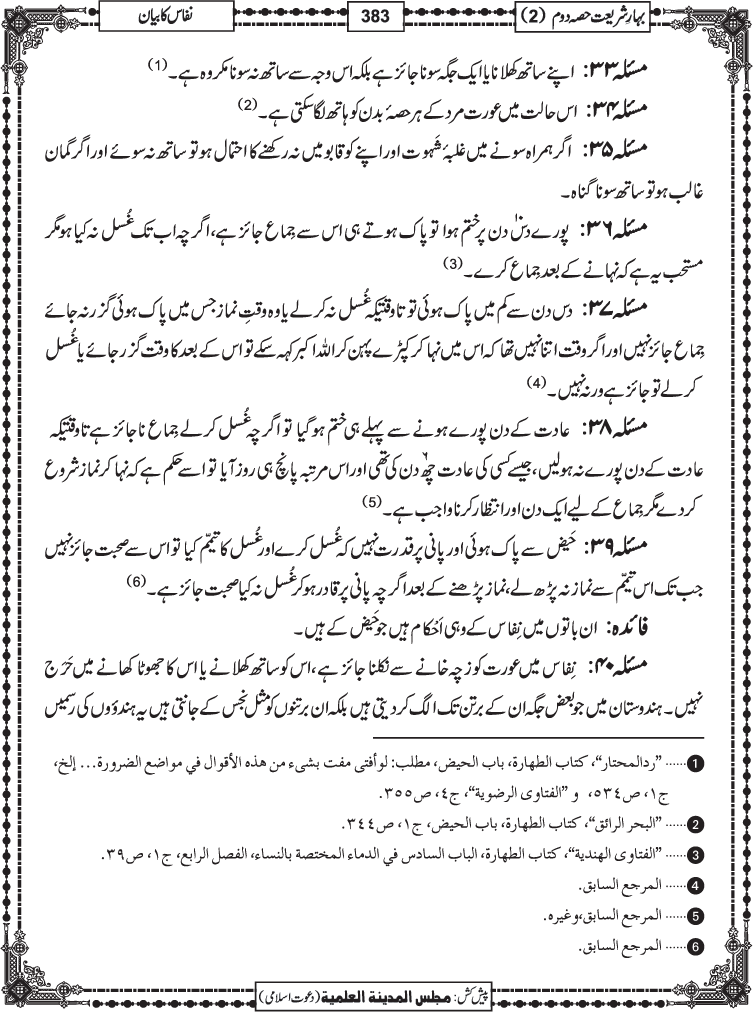 بہارِ شریعت حصہ دوم (2)
383
نفاس کا بیان
مسئلہ ۳۳: اپنے ساتھ کھلانا یا ایک جگہ سونا جائز ہے بلکہ اس وجہ سے ساتھ نہ سونا مکروہ ہے۔ (1)
مسئلہ ۳۴: اس حالت میں عورت مرد کے ہر حصۂ بدن کو ہاتھ لگا سکتی ہے۔ (2)
مسئلہ ۳۵: اگر ہمراہ سونے میں غلبۂ شَہوت اور اپنے کو قابو میں نہ رکھنے کا احتمال ہو تو ساتھ نہ سوئے اور اگر گمان
غالب ہو تو ساتھ سونا گناہ۔
مسئلہ ۳۶: پورے دس دن پر خَتم ہوا تو پاک ہوتے ہی اس سے جِماع جائز ہے، اگرچہ اب تک غُسل نہ کیا ہو مگر
مستحب یہ ہے کہ نہانے کے بعد جِماع کرے۔ (3)
مسئلہ ۳۷: دس دن سے کم میں پاک ہوئی تو تاوقتیکہ غُسل نہ کرلے یا وہ وقتِ نماز جس میں پاک ہوئی گزر نہ جائے
جِماع جائز نہیں اور اگر وقت اتنا نہیں تھا کہ اس میں نہا کر کپڑے پہن کر اللہ اکبر کہہ سکے تو اس کے بعد کا وقت گزر جائے یا غُسل
کرلے تو جائز ہے ورنہ نہیں۔ (4)
مسئلہ ۳۸: عادت کے دن پورے ہونے سے پہلے ہی ختم ہو گیا تو اگرچہ غُسل کرلے جِماع ناجائز ہے تاوقتیکہ
عادت کے دن پورے نہ ہولیں، جیسے کسی کی عادت چھ دن کی تھی اور اس مرتبہ پانچ ہی روز آیا تو اسے حکم ہے کہ نہا کر نماز شروع
کردے مگر جِماع کے لیے ایک دن اور انتظار کرنا واجب ہے۔ (5)
مسئلہ ۳۹: حَیض سے پاک ہوئی اور پانی پر قدرت نہیں کہ غُسل کرے اور غُسل کا تیمّم کیا تو اس سے صحبت جائز نہیں
جب تک اس تیمّم سے نماز نہ پڑھ لے، نماز پڑھنے کے بعد اگرچہ پانی پر قادر ہو کر غُسل نہ کیا صحبت جائز ہے۔ (6)
فائدہ: ان باتوں میں نفاس کے وہی اَحکام ہیں جو حَیض کے ہیں۔
مسئلہ ۴۰: نِفاس میں عورت کو زچہ خانے سے نکلنا جائز ہے، اس کو ساتھ کھلانے یا اس کا جھوٹا کھانے میں حَرَج
نہیں۔ ہندوستان میں جو بعض جگہ ان کے برتن تک الگ کردیتی ہیں بلکہ ان برتنوں کو مثلِ نجس کے جانتی ہیں یہ ہندؤوں کی رسمیں
1 ...... "ردالمحتار"، كتاب الطهارة، باب الحيض، مطلب: لو أفتى مفت بشيء من هذه الأقوال في مواضع الضرورة... إلخ،
ج١، ص٥٣٤، و "الفتاوى الرضوية"، ج٤، ص٣٥٥.
2 ...... "البحر الرائق"، كتاب الطهارة، باب الحيض، ج١، ص٣٤٤.
3 ...... "الفتاوى الهندية"، كتاب الطهارة، الباب السادس في الدماء المختصة بالنساء، الفصل الرابع، ج١، ص٣٩.
4 ...... المرجع السابق.
5 ...... المرجع السابق، وغيره.
6 ...... المرجع السابق.
پیش کش: مجلس المدينة العلمية (دعوت اسلامی)